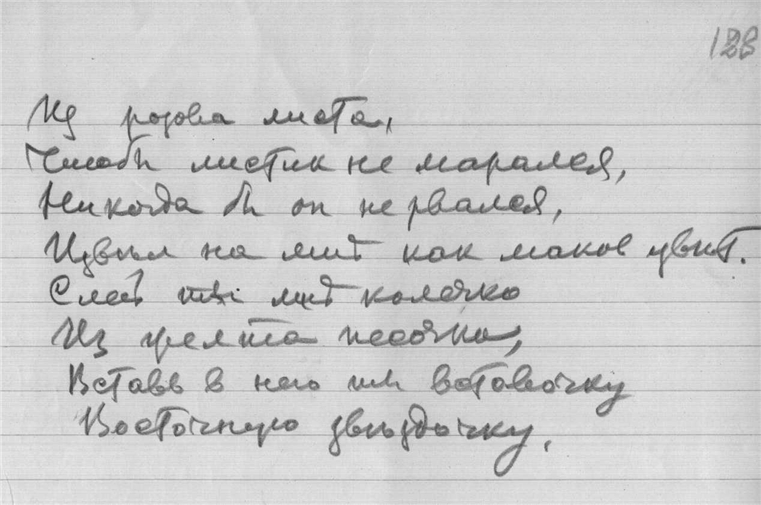 128
Из розова листа,
Чтобы листик не марался,
Никогда бы он не рвался,
на мит как маков цвит.
Слей ты мит колечко
Из желта песочка,
Вставь в него ты вставочку
Восточную звъздочку,